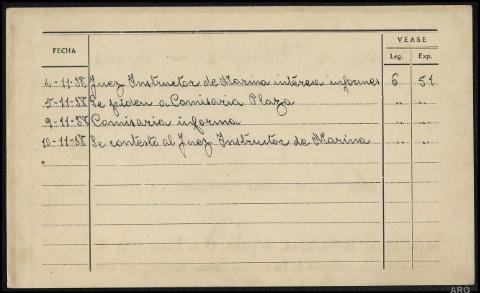 VEASE
FECHA Leg. Exp.
4-11-58 Juez Instructor de Marina interesa informes 6 51
5-11-58 Se piden a Comisaria Plaza " "
9-11-58 Comisaria informa " "
10-11-58 Se contestó al Juez Instructor de Marina " "
ARG